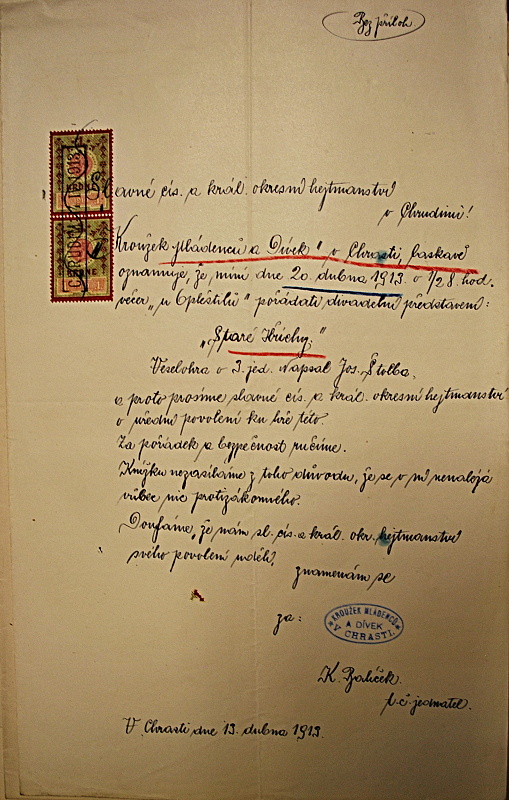 Bez příloh.
Slavné cís. a král. okresní hejtmanství
v Chrudimi!
Kroužek „mládenců a Dívek" v Chrasti, laskavě
oznamuje, že míní dne 20. dubna 1913. o 1/2 8. hod.
večer „u Opleštilů" pořádati divadelní představení:
„Staré Hříchy."
Veselohra o 3. jed. Napsal Jos. Štolba,
a proto prosíme slavné cís. a král. okresní hejtmanství
o úřední povolení ku hře této.
Za pořádek a bezpečnost ručíme.
Knížku nezasíláme z toho důvodu, že se v ní nenalézá
vůbec nic protizákonného.
Doufáme, že nám sl. cís. a král. okr. hejtmanství
svého povolení udělí,
znamenám se
za:
KROUŽEK MLÁDENCŮ
A DÍVEK
V CHRASTI.
K. Balíček.
t. č. jednatel.
V Chrasti dne 13. dubna 1913.